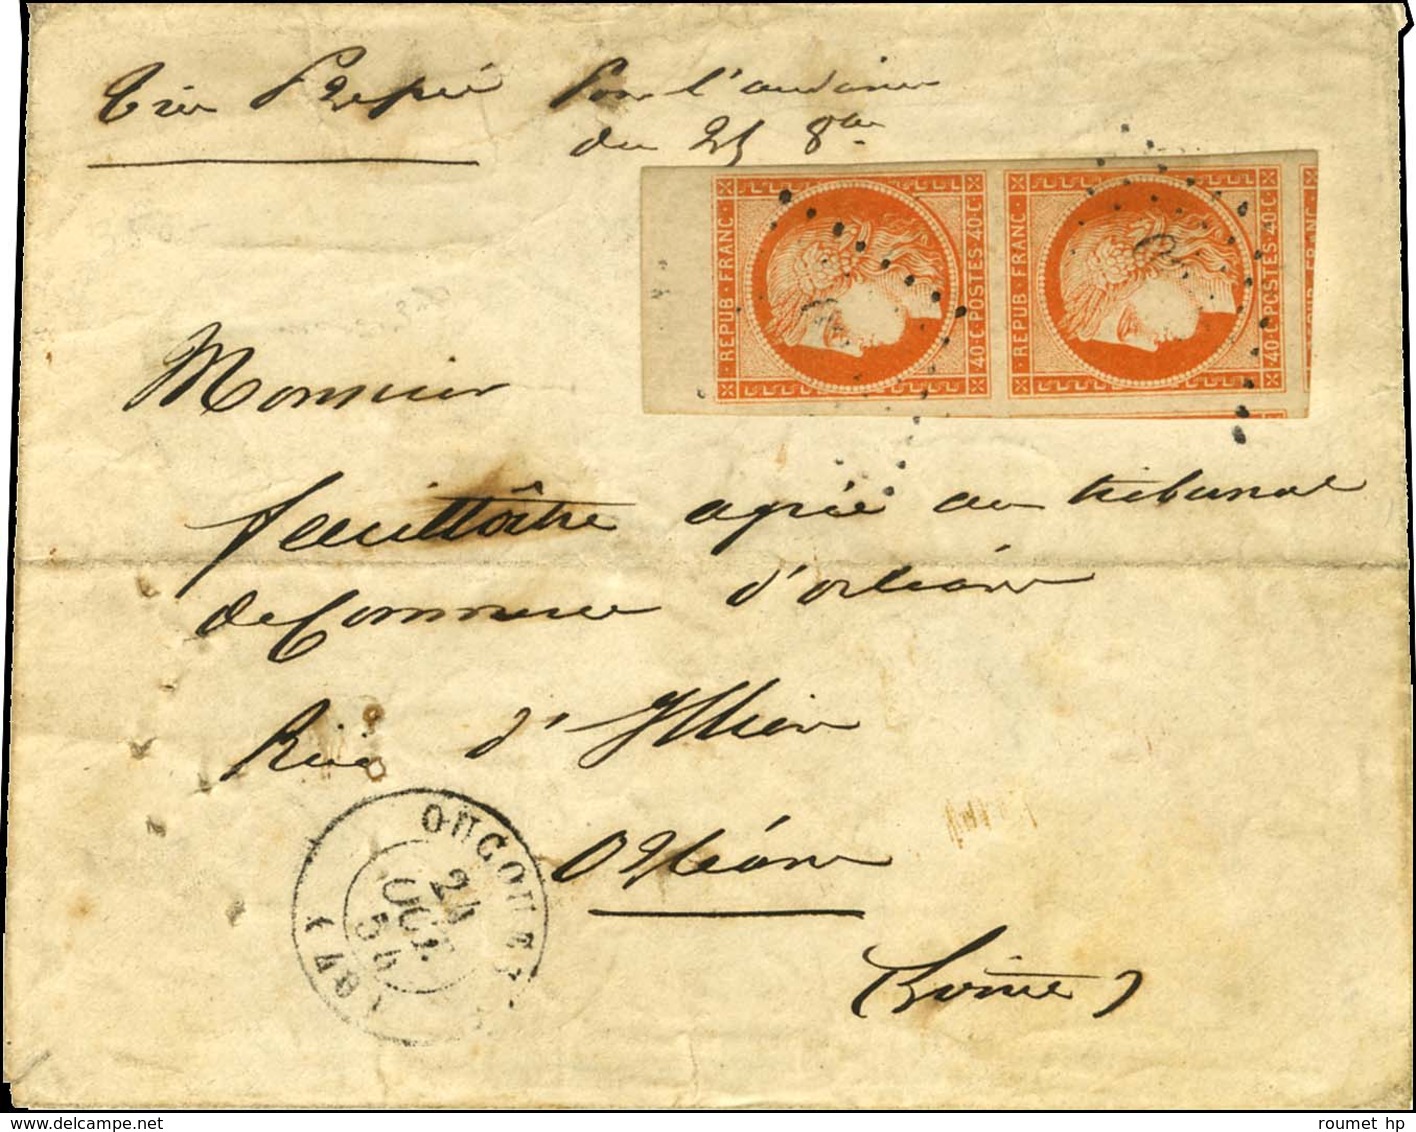 très Pressé Pour l'audience
du 25 8bre
REPUB FRANC
40 C POSTES 40 C
REPUB FRANC
40 C POSTES 40 C
Monsieur
agréé au tribunal
de Commerce d'orléans
Rue d'Illiers
Orléans
(Loiret)
OUCQUES
24
OCT.
54
(40)
roumet hp